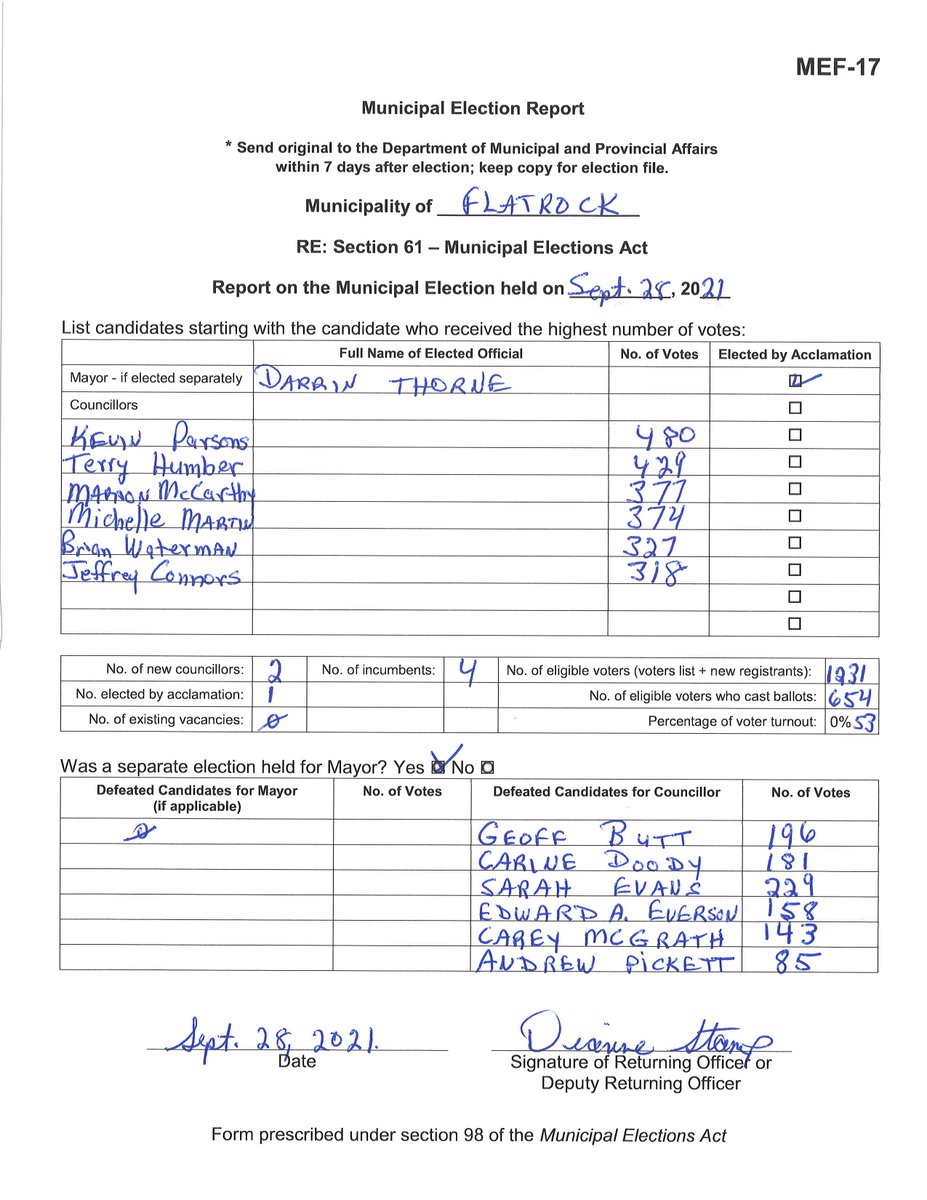 MEF-17
Municipal Election Report
* Send original to the Department of Municipal and Provincial Affairs
within 7 days after election; keep copy for election file.
Municipality of FLATROCK
RE: Section 61 – Municipal Elections Act
Report on the Municipal Election held on Sept. 28, 2021
List candidates starting with the candidate who received the highest number of votes:
Full Name of Elected Official No. of Votes Elected by Acclamation
Mayor - if elected separately DARRIN THORNE
Councillors
KEVIN Parsons 480
Terry Humber 429
MARION McCarthy 377
Michelle MARTIN 374
Brian WaterMAN 327
Jeffrey Connors 318
No. of new councillors: 2 No. of incumbents: 4 No. of eligible voters (voters list + new registrants): 1231
No. elected by acclamation: 1 No. of eligible voters who cast ballots: 654
No. of existing vacancies: 0 Percentage of voter turnout: 0% 53
Was a separate election held for Mayor? Yes No
Defeated Candidates for Mayor (if applicable) No. of Votes Defeated Candidates for Councillor No. of Votes
0 GEOFF BUTT 196
CARINE DOODY 181
SARAH EVANS 229
EDWARD A. EVERSON 158
CAREY MCGRATH 143
ANDREW PiCKETT 85
Sept. 28, 2021. Dianne Stamp
Date Signature of Returning Officer or
Deputy Returning Officer
Form prescribed under section 98 of the Municipal Elections Act